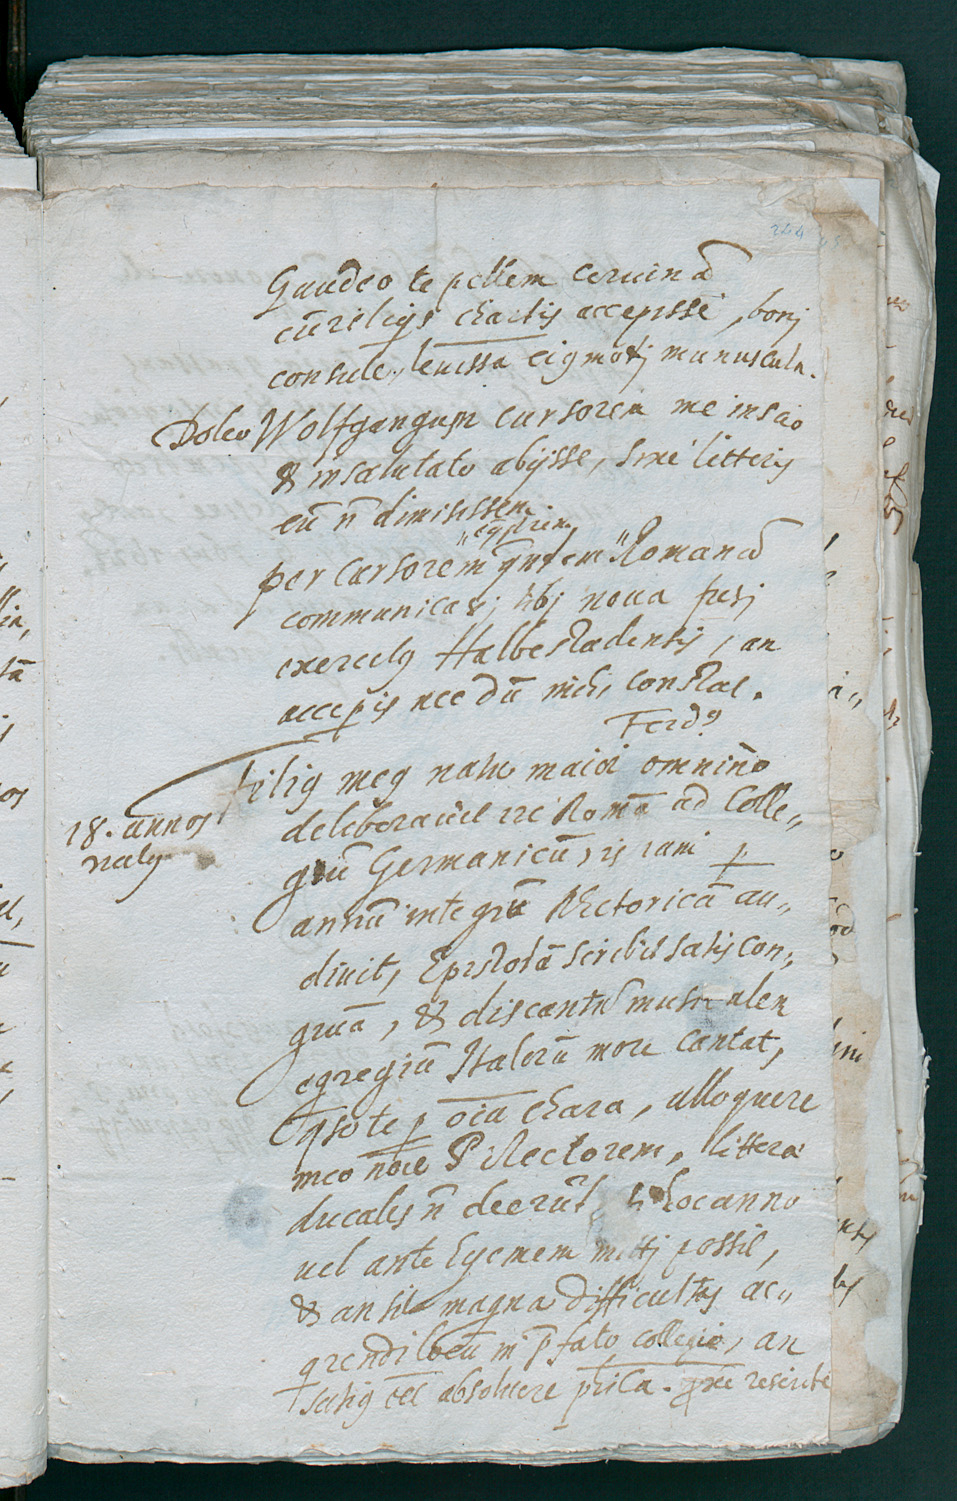 224
Gaudeo te pellem ceruinā
cū reliqs chartis accepisse, bonj
consule, leuissa
munuscula.
Doleo Wolfgangum cursorem me inscio
& insalutato abijsse, sine litteris
eū n̄ dimisissem.
per cursorem Romanā
communicauj tibj noua fusj
exercitq Halberstadensis, an
acceperis nec dū mihi constat.
Ferdq
Filiq meq natu maior omnino
18. annos
natq
deliberauit ire Romā ad Colle„
giū Germanicū, is iam p
annū integrū Rhetoricā au„
diuit, Epistolā scribit satis con„
gruā, & discantū musicalem
egregiā Italorū more cantat,
qso te p oīa chara, alloquere
meo noīe P. Rectorem, littera
ducales n̄ deerūt hoc anno
uel ante hyemem mittj possit,
& an sit magna difficultas ac„
qrendi locū in p̄fato collegio, an
satiq eēt absoluere phīca. rescribe